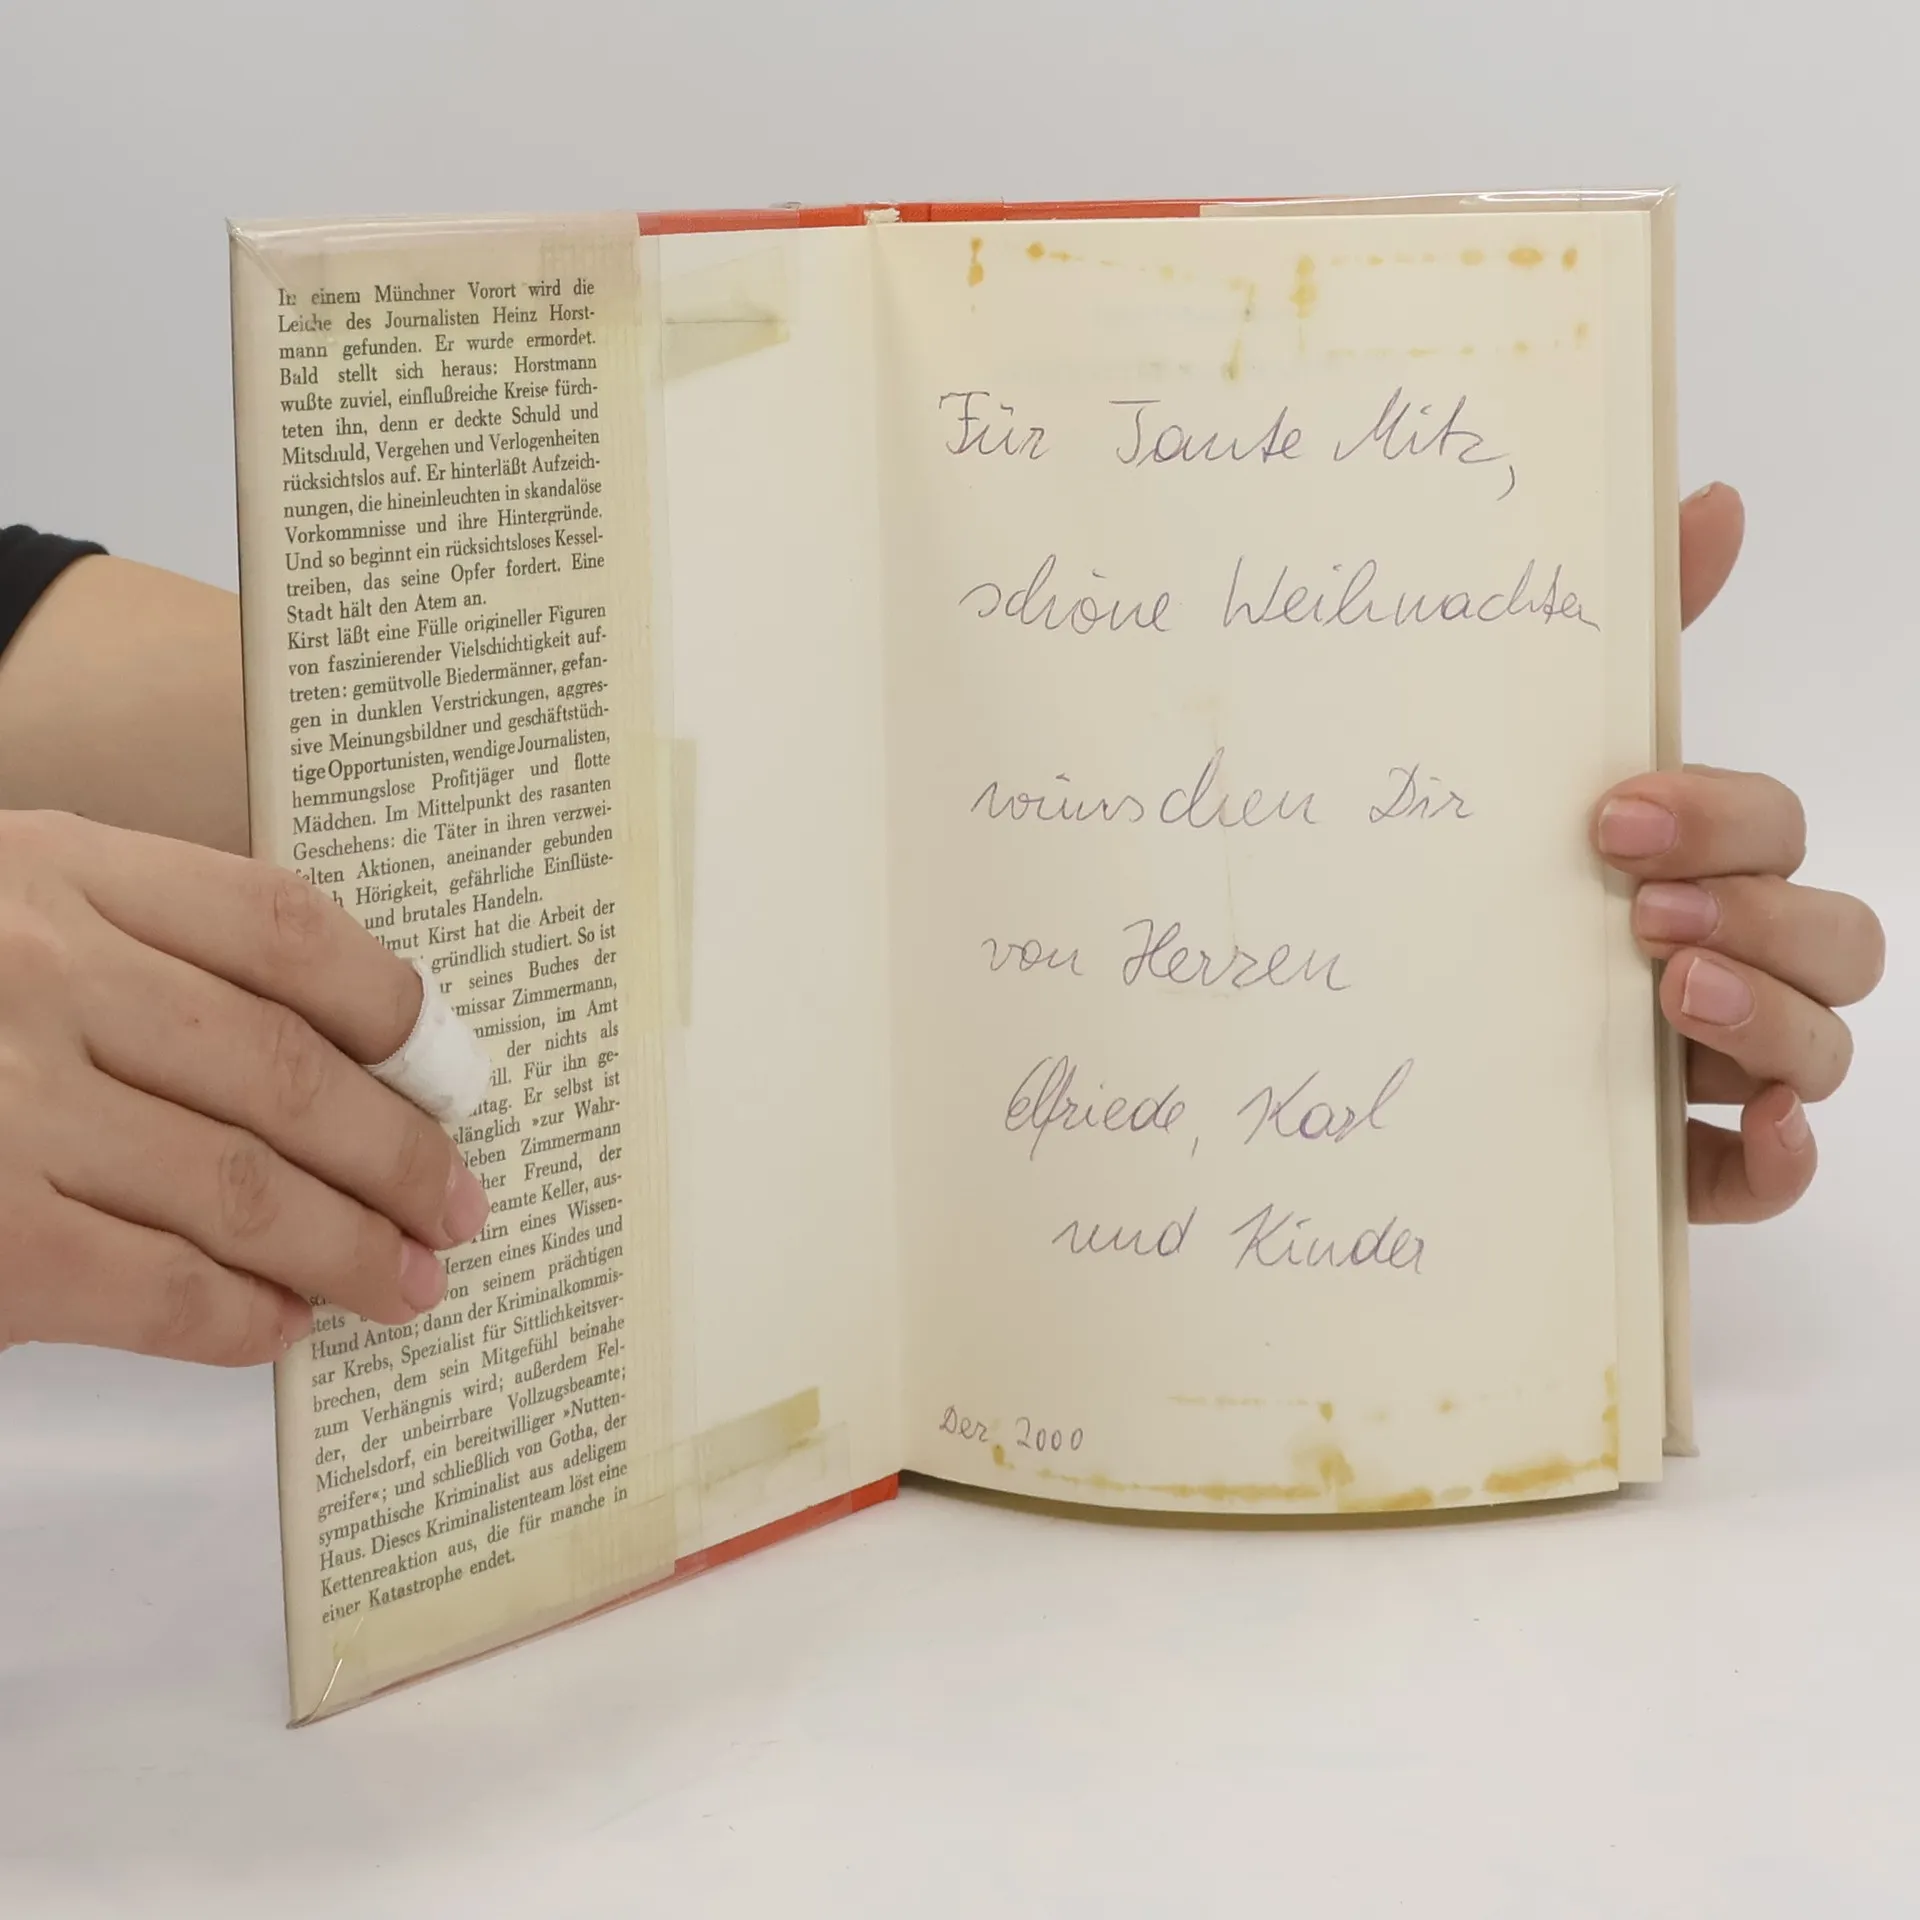 In einem Münchner Vorort wird die
Leiche des Journalisten Heinz Horst-
mann gefunden. Er wurde ermordet.
Bald stellt sich heraus: Horstmann
wußte zuviel, einflußreiche Kreise fürch-
teten ihn, denn er deckte Schuld und
Mitschuld, Vergehen und Verlogenheiten
rücksichtslos auf. Er hinterläßt Aufzeich-
nungen, die hineinleuchten in skandalöse
Vorkommnisse und ihre Hintergründe.
Und so beginnt ein rücksichtsloses Kessel-
treiben, das seine Opfer fordert. Eine
Stadt hält den Atem an.
Kirst läßt eine Fülle origineller Figuren
von faszinierender Vielschichtigkeit auf-
treten: gemütvolle Biedermänner, gefan-
gen in dunklen Verstrickungen, aggres-
sive Meinungsbildner und geschäftstüch-
tige Opportunisten, wendige Journalisten,
hemmungslose Profitjäger und flotte
Mädchen. Im Mittelpunkt des rasanten
Geschehens: die Täter in ihren verzwei-
felten Aktionen, aneinander gebunden
h Hörigkeit, gefährliche Einflüste-
und brutales Handeln.
llmut Kirst hat die Arbeit der
gründlich studiert. So ist
ur seines Buches der
missar Zimmermann,
mmission, im Amt
der nichts als
will. Für ihn ge-
ntag. Er selbst ist
slänglich »zur Wahr-
Neben Zimmermann
cher Freund, der
eamte Keller, aus-
Hirn eines Wissen-
Herzen eines Kindes und
stets von seinem prächtigen
Hund Anton; dann der Kriminalkommis-
sar Krebs, Spezialist für Sittlichkeitsver-
brechen, dem sein Mitgefühl beinahe
zum Verhängnis wird; außerdem Fel-
der, der unbeirrbare Vollzugsbeamte;
Michelsdorf, ein bereitwilliger »Nutten-
greifer«; und schließlich von Gotha, der
sympathische Kriminalist aus adeligem
Haus. Dieses Kriminalistenteam löst eine
Kettenreaktion aus, die für manche in
einer Katastrophe endet.
Für Tante Mitz,
schöne Weihnachten
wünschen Dir
von Herzen
Elfriede, Karl
und Kinder
Dez. 2000